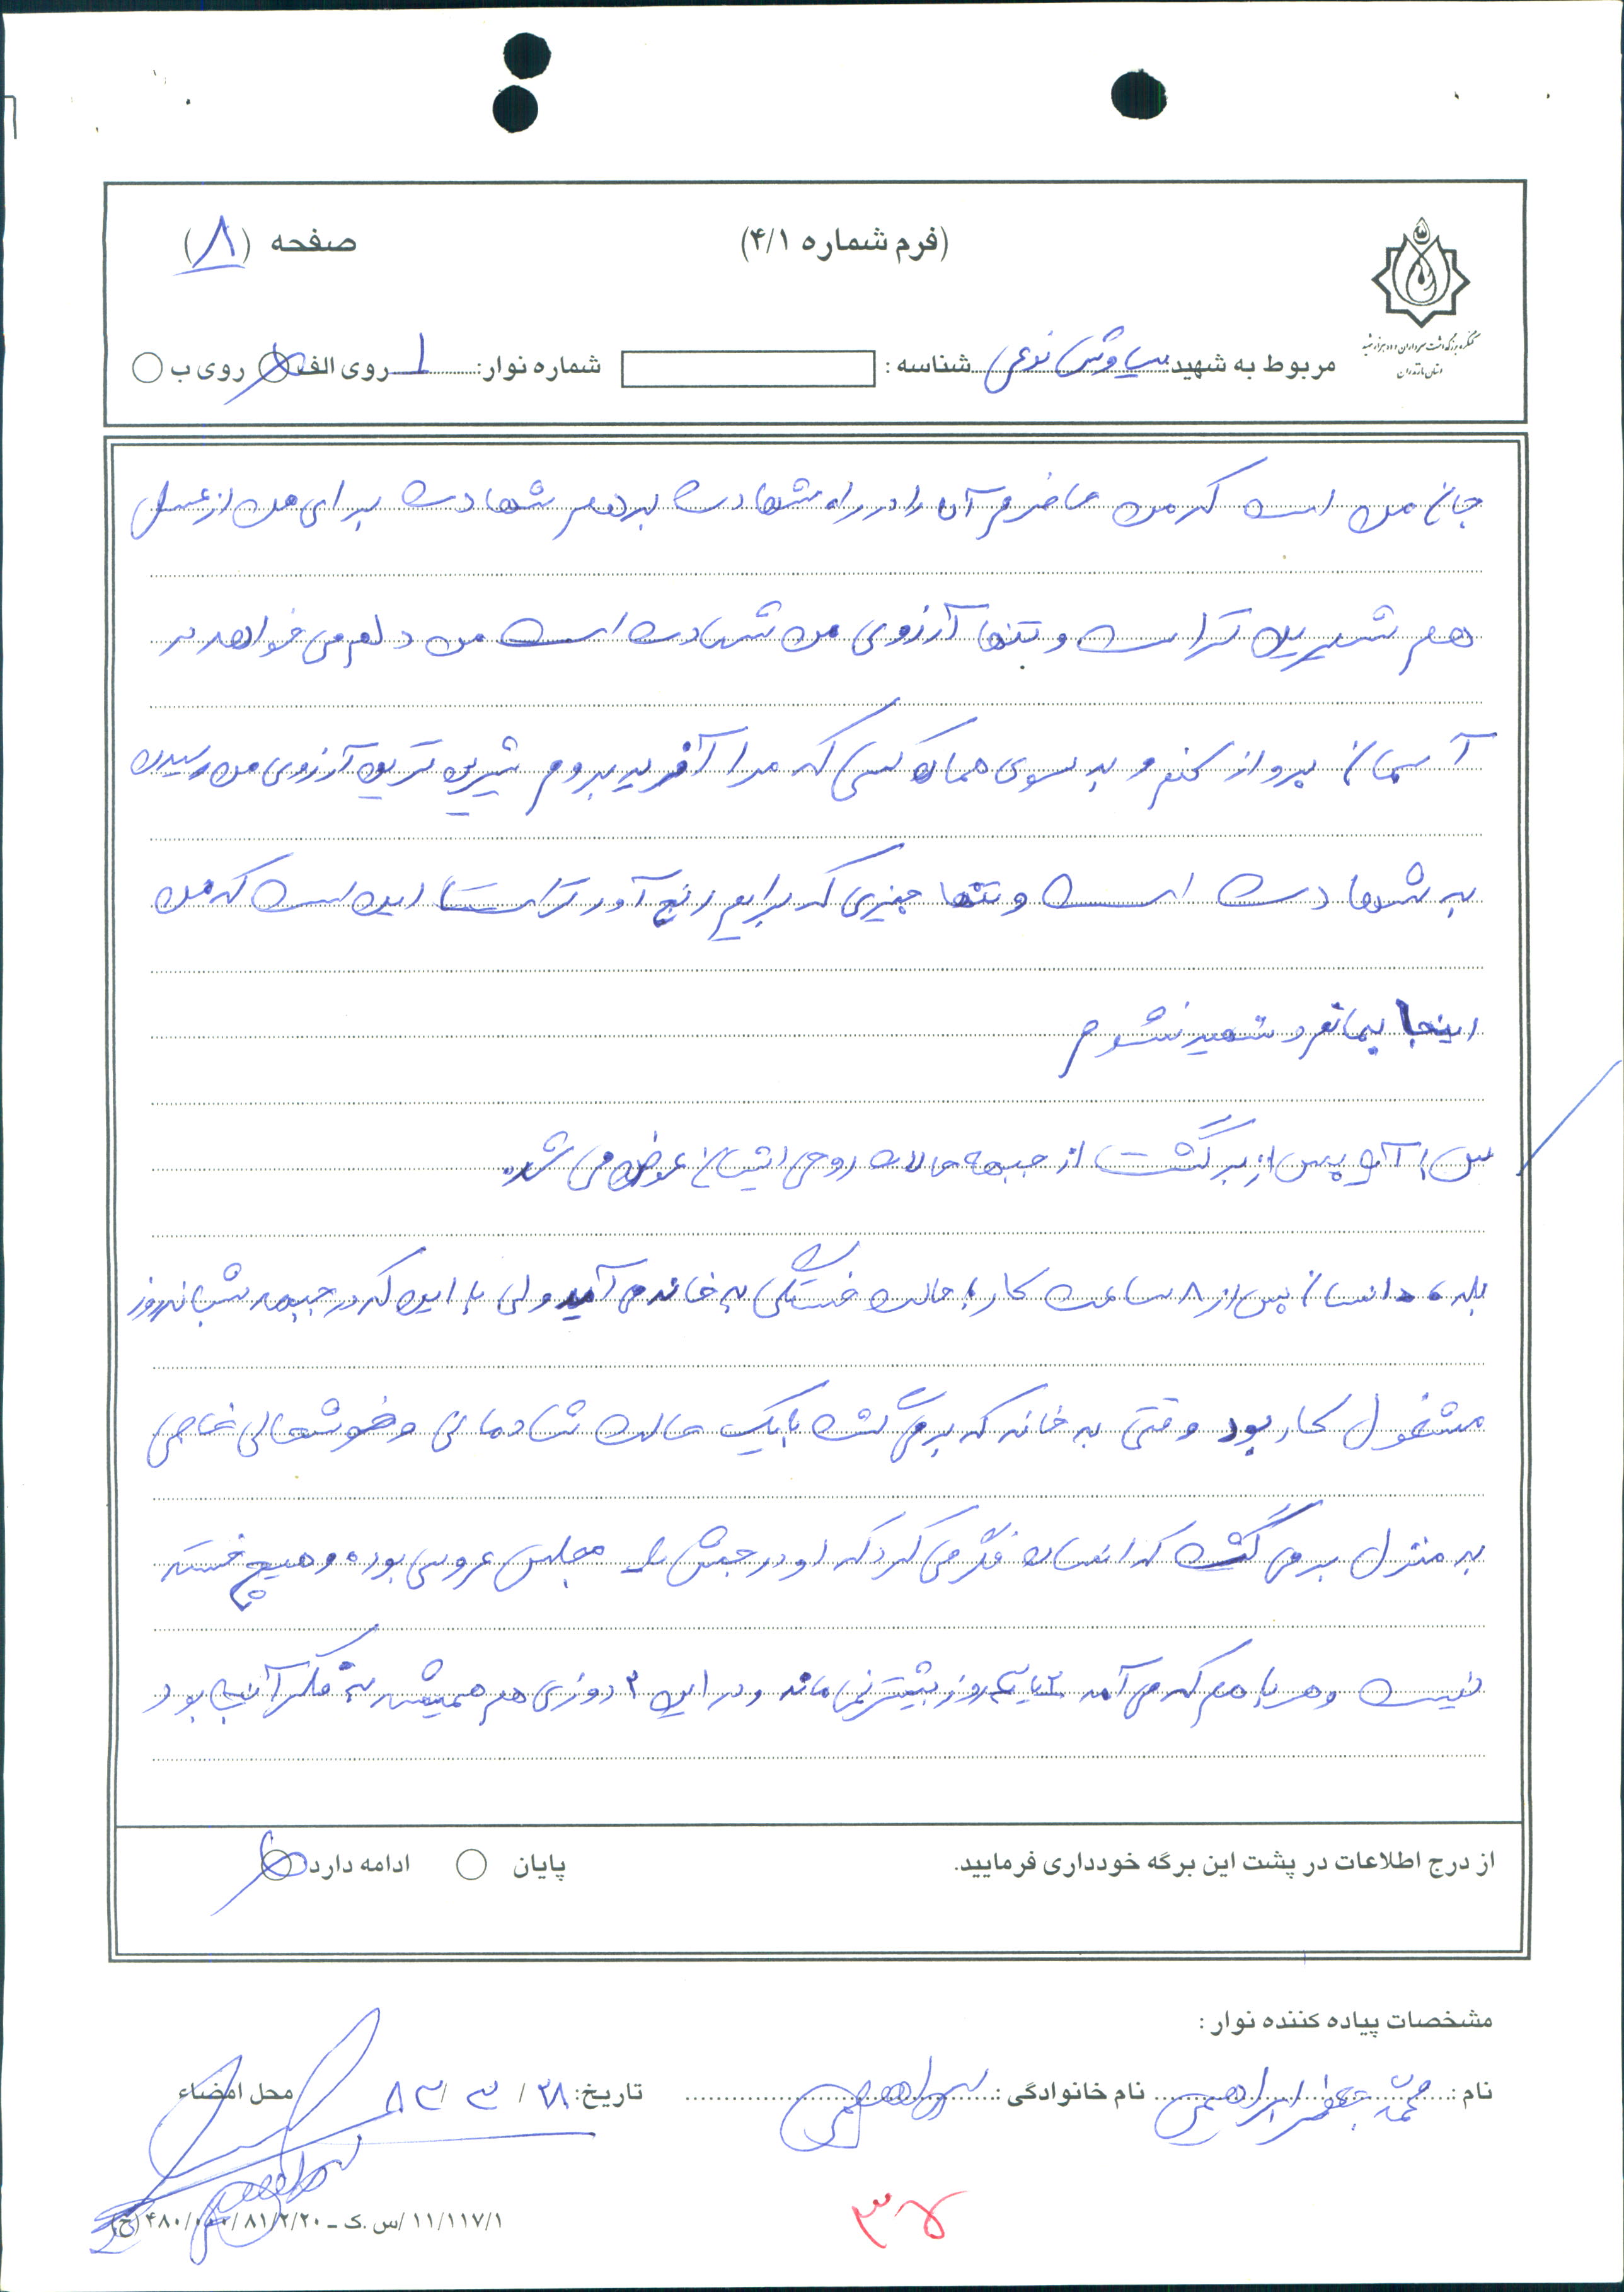 (فرم شماره ۴/۱)
صفحه (۸)
کنگره بزرگداشت سرداران و ده هزار شهید
استان مازندران
مربوط به شهید: سیاوش نوعی شناسه: شماره نوار: ۱ روی الف روی ب
جان من است که من حاضرم آن را در راه شهادت بدهم شهادت برای من از عسل
هم شیرین تر است و تنها آرزوی من شهادت است من دلم می خواهد در
آسمان پرواز کنم و به سوی همان کسی که مرا آفرید بروم شیرین ترین آرزوی من رسیدن
به شهادت است و تنها چیزی که برایم رنج آور تر است این است که من
اینجا بمانم و شهید نشوم
س: آیا پس از برگشت از جبهه حالات روحی ایشان عوض می شد.
بله، انسان پس از ۸ ساعت کار با حالت خستگی به خانه می آید ولی با این که در جبهه شبانه روز
مشغول کار بود وقتی به خانه که برمی گشت با یک حالت شادمانی و خوشحالی خاصی
به منزل برمی گشت که انسان فکر می کرد که او در جشن یا مجلس عروسی بوده و هیچ خسته
نیست و هر بار هم که می آمد ۲ یا ۳ روز بیشتر نمی ماند و در این ۳ روزی هم همیشه به فکر آنجا بود
از درج اطلاعات در پشت این برگه خودداری فرمایید.
پایان ادامه دارد
مشخصات پیاده کننده نوار:
نام: محمد جعفر ابراهیمی نام خانوادگی: ابراهیمی تاریخ: ۲۸ / ۳ / ۸۳ محل امضاء
۱۱/۱۱۷/۱/س.ک ـ ۸۱/۲/۲۰